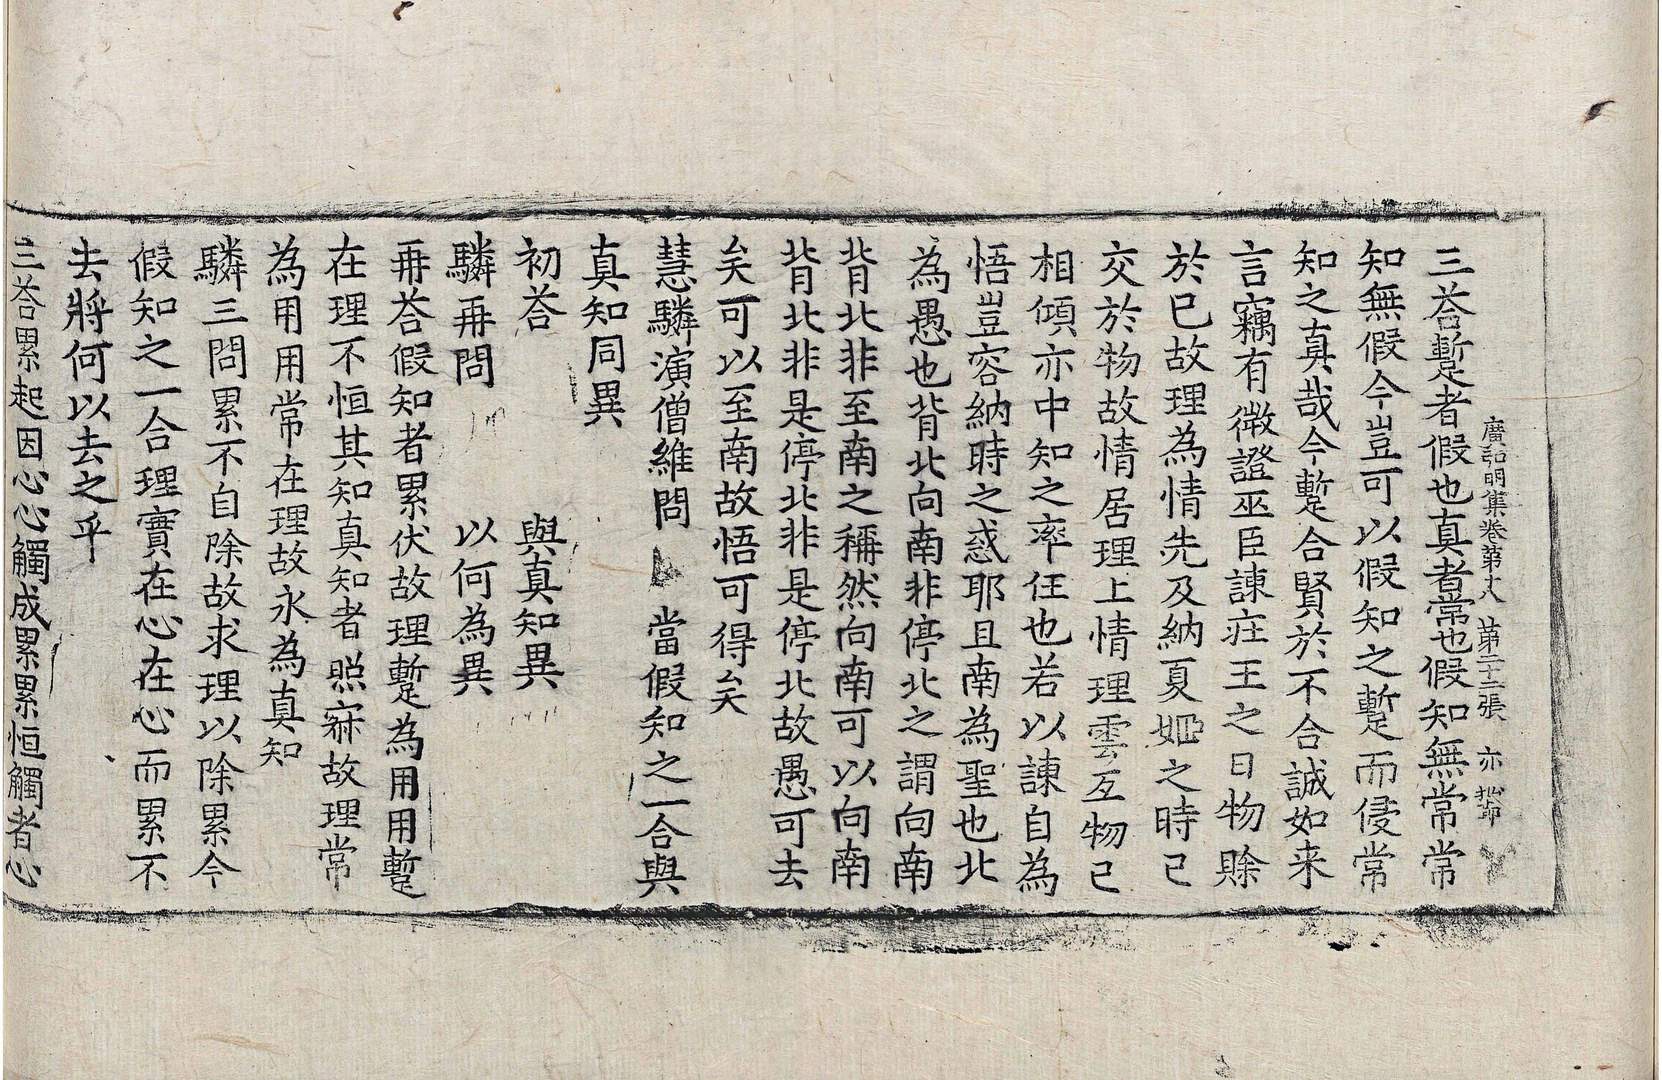 廣弘明集卷第十八 第二十二張 亦
三荅蹔者假也真者常也假知無常常
知無假今豈可以假知之蹔而侵常
知之真哉今蹔合賢於不合誠如来
言竊有微證巫臣諫莊王之日物賒
於已故理為情先及納夏姬之時已
交於物故情居理上情理雲互物已
相傾亦中知之率任也若以諫自為
悟豈容納時之惑耶且南為聖也北
為愚也背北向南非停北之謂向南
背北非至南之稱然向南可以向南
背北非是停北非是停北故愚可去
矣可以至南故悟可得矣
慧驎演僧維問 當假知之一合與
真知同異
初荅 與真知異
驎再問 以何為異
再荅假知者累伏故理蹔為用用蹔
在理不恒其知真知者照寂故理常
為用用常在理故永為真知
驎三問累不自除故求理以除累今
假知之一合理實在心在心而累不
去將何以去之乎
三荅累起因心心觸成累累恒觸者心